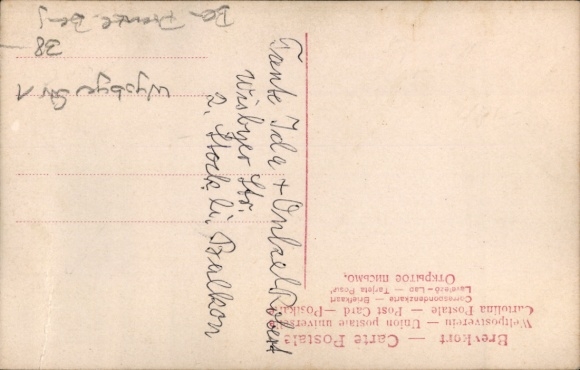 Brevkort — Carte Postale
Weltpostverein — Union postale universe
Cartolina Postale — Post Card — Postkar
Correspondenzkarte — Briefkaart
Levelező-Lap — Tarjeta Postal
Открытое письмо.
Tante Ida + Onkel Robert
Wisbyer Str.
2. Stock li. Balkon
Prenzl. Berg
38-
Wysbyer Str 1